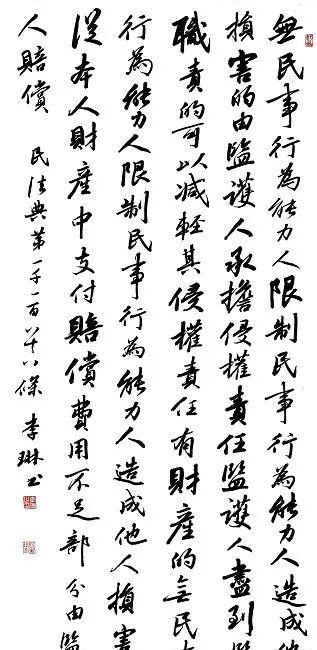 無民事行為能力人限制民事行為能力人造成他
損害的由監護人承擔侵權責任監護人盡到監
職責的可以減輕其侵權責任有財產的無民
行為能力人限制民事行為能力人造成他人損害
從本人財產中支付賠償費用不足部分由監
人賠償 民法典第一千一百八十八條 李琳书